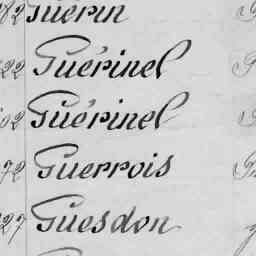 82 Guérin
22 Guérinel
02 Guérinel
72 Guerrois
27 Guesdon